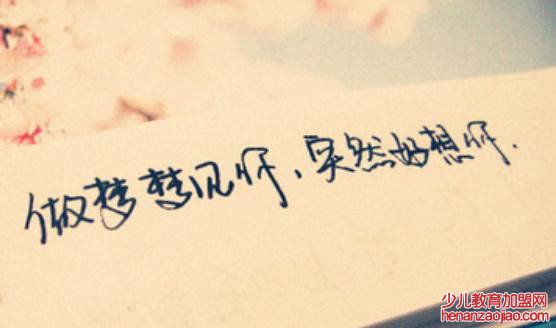 做梦梦见你、突然好想你.
少儿教育加盟网
henanzaojiao.com